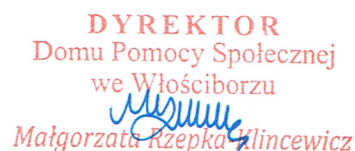 DYREKTOR
Domu Pomocy Społecznej
we Włościborzu
Małgorzata Rzepka Klincewicz